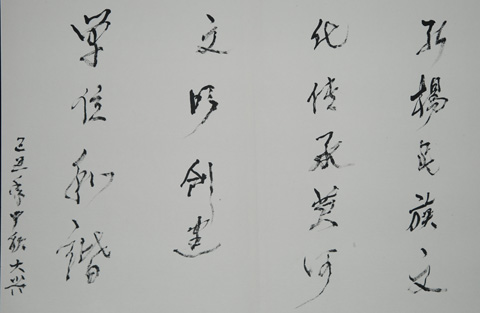 弘揚民族文
化傳承黃河
文明創建
單位和諧
己丑年中秋大興